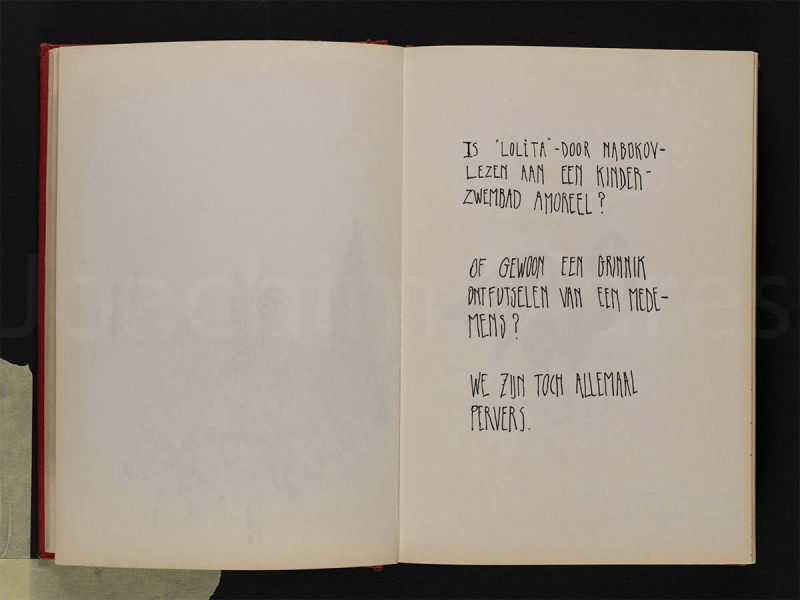 Is "LOLiTA" -DOOR NABOKOV-
LEZEN AAN EEN KINDER-
ZWEMBAD AMOREEL?
OF GEWOON EEN GRINNIK
ONTFUTSELEN VAN EEN MEDE-
MENS?
WE ZIJN TOCH ALLEMAAL
PERVERS.